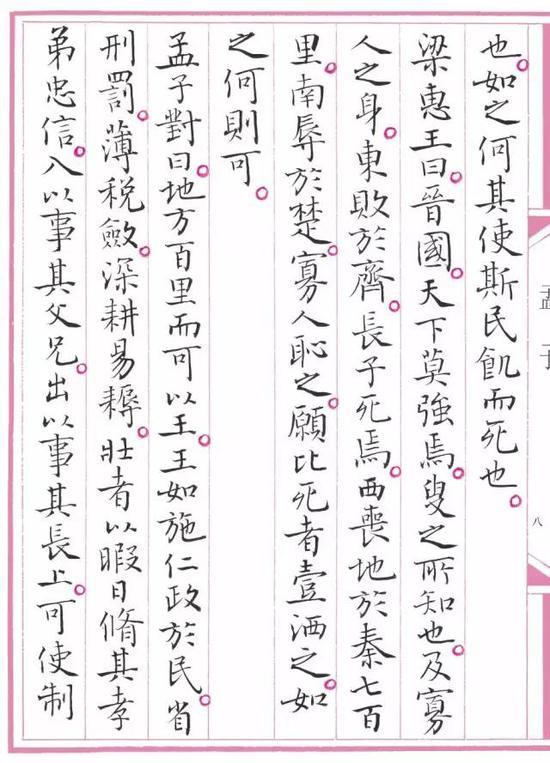 孟子
八
也。如之何其使斯民飢而死也。
梁惠王曰。晉國。天下莫強焉。叟之所知也。及寡
人之身。東敗於齊。長子死焉。西喪地於秦七百
里。南辱於楚。寡人恥之。願比死者壹洒之。如
之何則可。
孟子對曰。地方百里而可以王。王如施仁政於民。省
刑罰。薄稅斂。深耕易耨。壯者以暇日脩其孝
弟忠信。入以事其父兄。出以事其長上。可使制